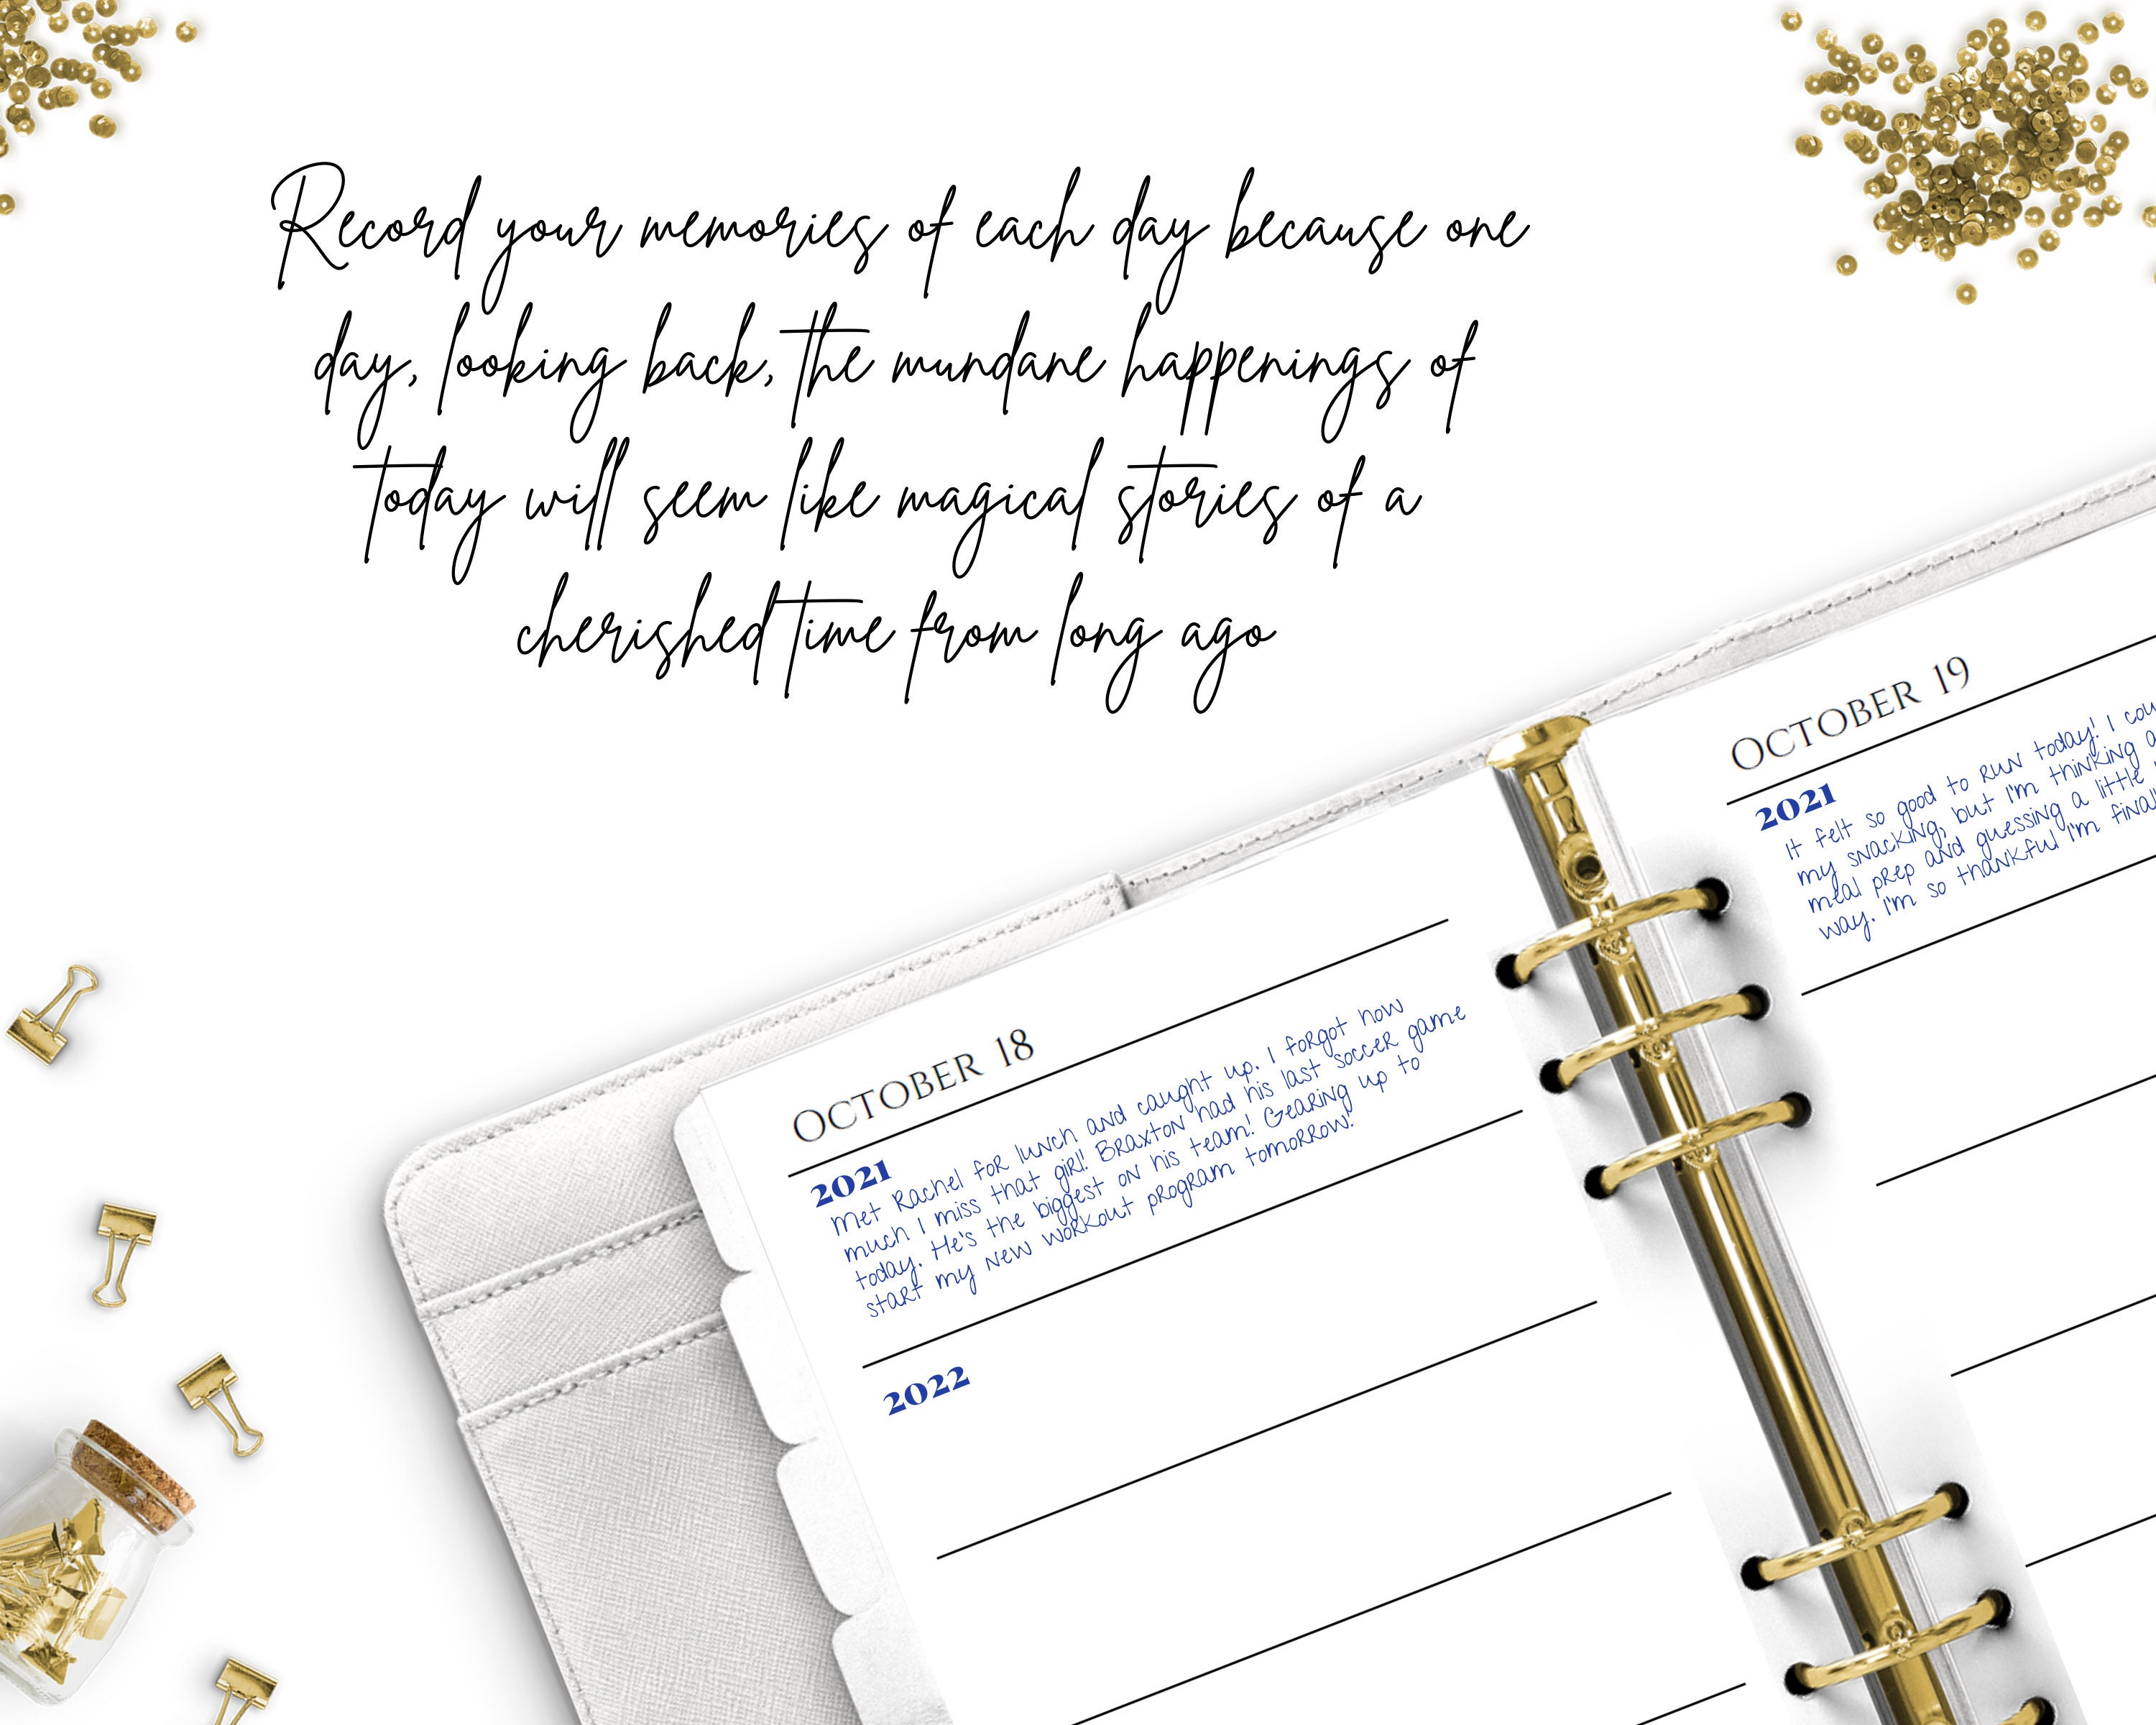 Record your memories of each day because one
day, looking back, the mundane happenings of
today will seem like magical stories of a
cherished time from long ago
OCTOBER 18
2021
Met Rachel for lunch and caught up. I forgot how
much I miss that girl! Braxton had his last soccer game
today. He's the biggest on his team! Gearing up to
start my new workout program tomorrow!
2022
OCTOBER 19
2021
It felt so good to run today! I
my snacking, but I'm thinking
meal prep and guessing a little
way. I'm so thankful I'm